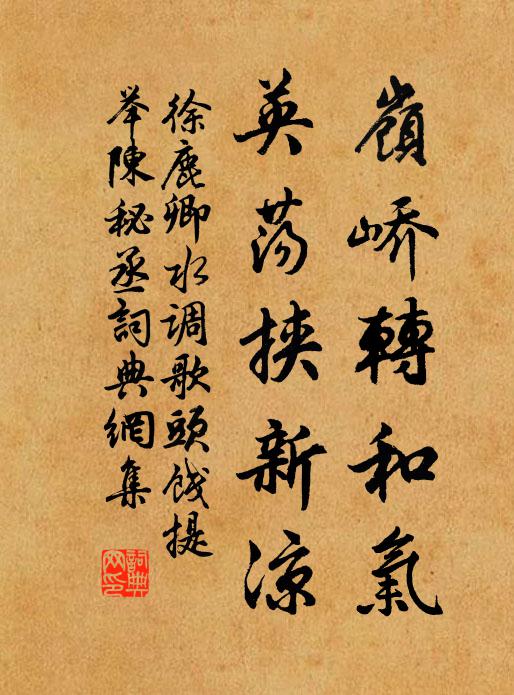 嶺峤轉和氣
英荡挟新涼
徐鹿卿水调歌頭餞提
举陳秘丞詞典網集
詞典網印